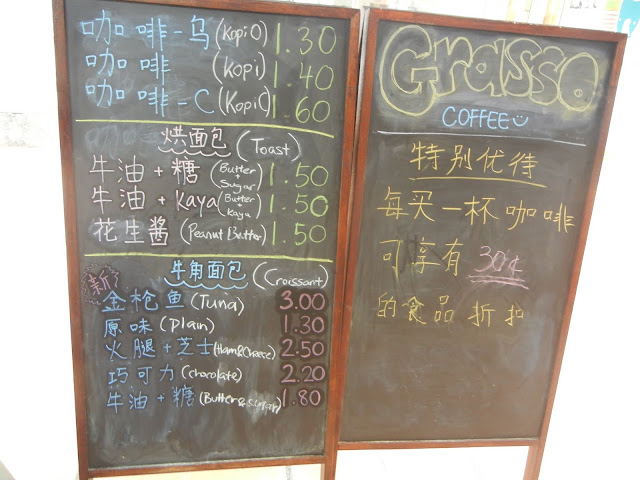 咖啡-乌(Kopi O) 1.30
咖啡(Kopi) 1.40
咖啡-C(Kopi C) 1.60
烘面包(Toast)
牛油+糖(Butter Sugar) 1.50
牛油+Kaya(Butter + Kaya) 1.50
花生酱(Peanut Butter) 1.50
新! 牛角面包(Croissant)
金枪鱼(Tuna) 3.00
原味(Plain) 1.30
火腿+芝士(Ham&Cheese) 2.50
巧可力(chocolate) 2.20
牛油+糖(Butter&Sugar) 1.80
Grasso
COFFEE
特别优待
每买一杯咖啡
可享有 30¢
的食品折扣